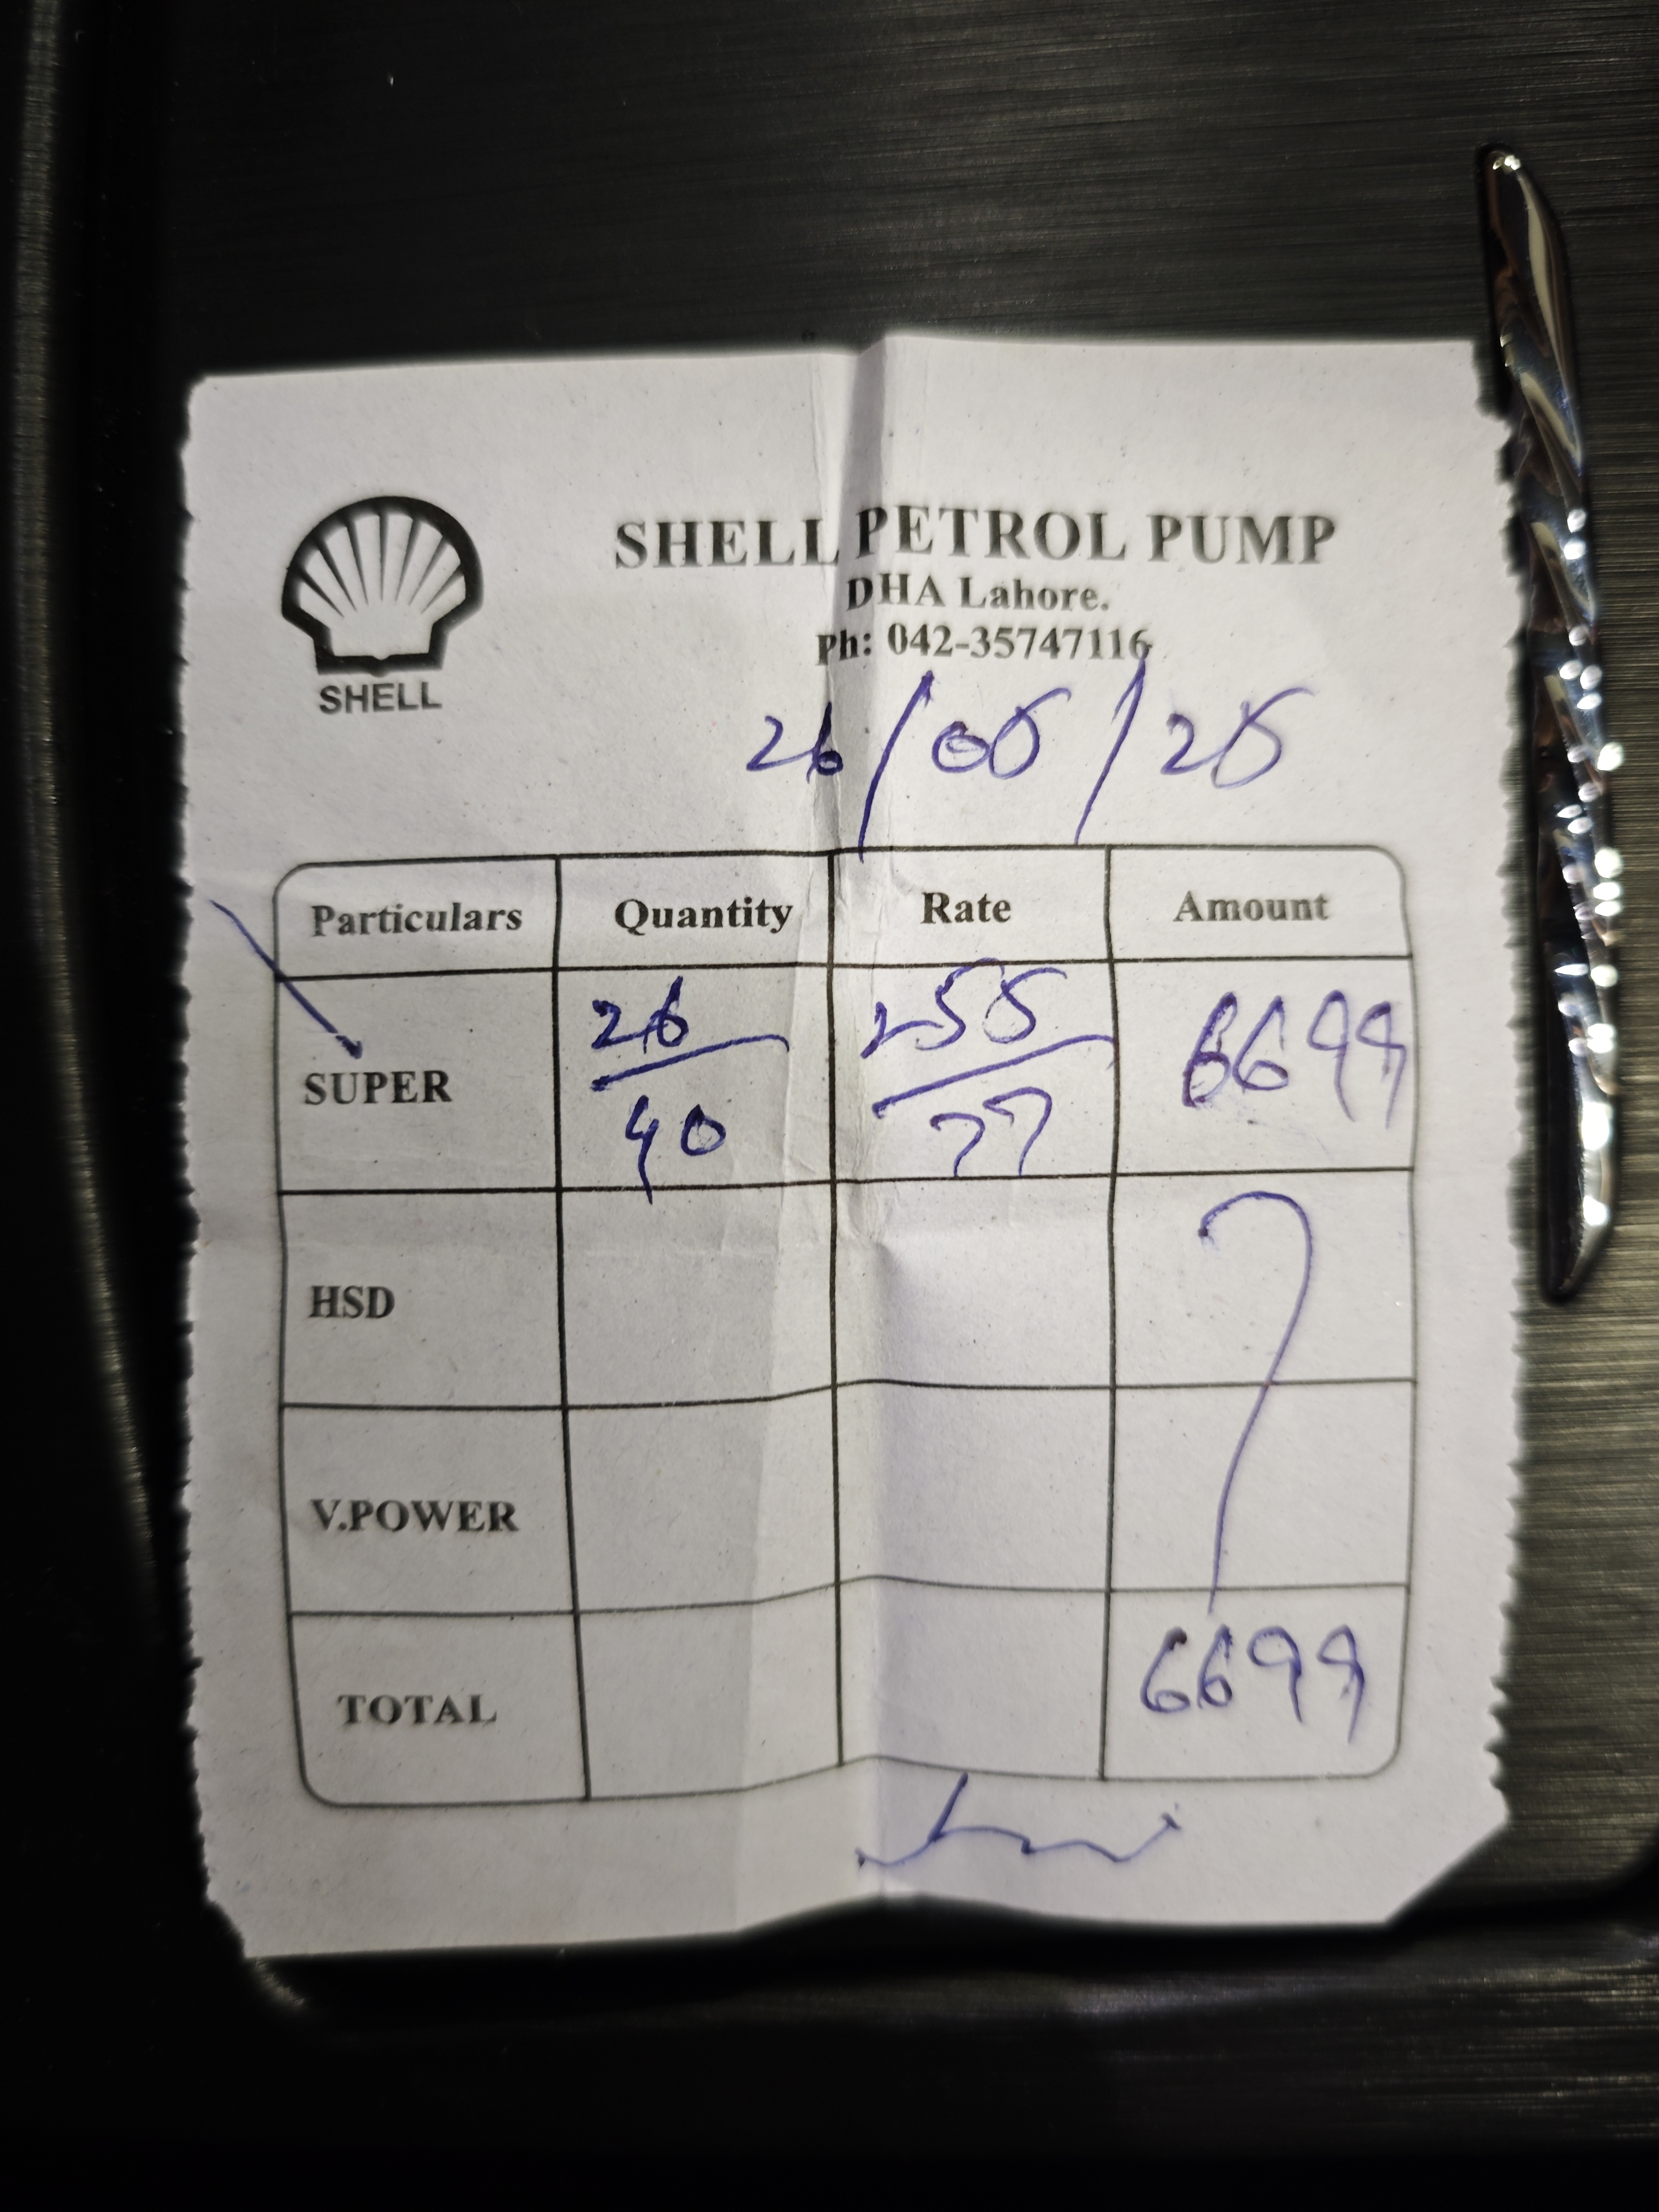 SHELL PETROL PUMP
DHA Lahore.
Ph: 042-35747116
SHELL
26/05/25
Particulars Quantity Rate Amount
SUPER 26/40 255/77 6699
HSD
V.POWER
TOTAL 6699